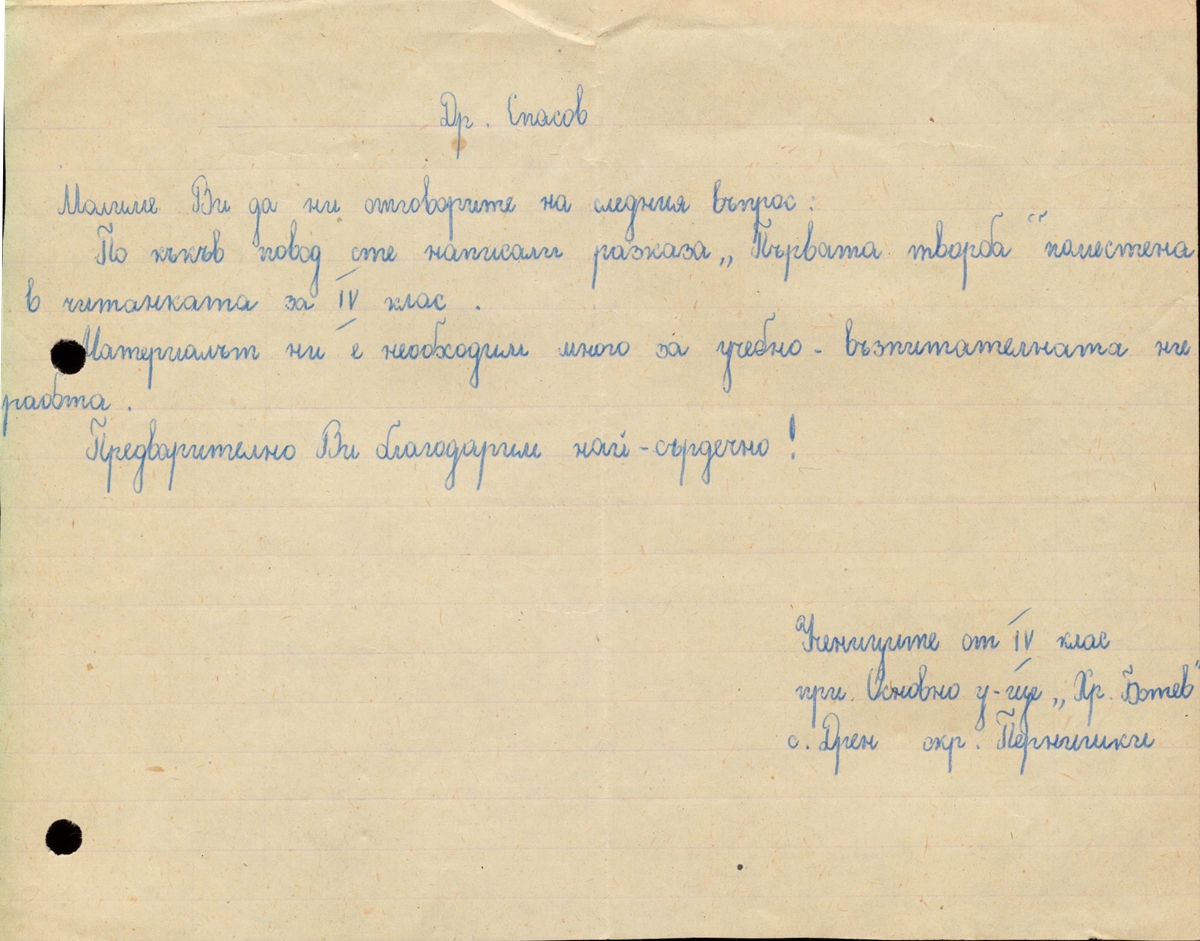 Др. Спасов
Молиме Ви да ни отговорите на следния въпрос:
По къкъв повод сте написали разказа „Първата творба“ поместена
в читанката за IV клас.
Материалът ни е необходим много за учебно-възпитателната ни
работа.
Предварително Ви благодарим най-сърдечно!
Учениците от IV клас
при Основно у-ще „Хр. Ботев“
с. Дрен окр. Пернишки